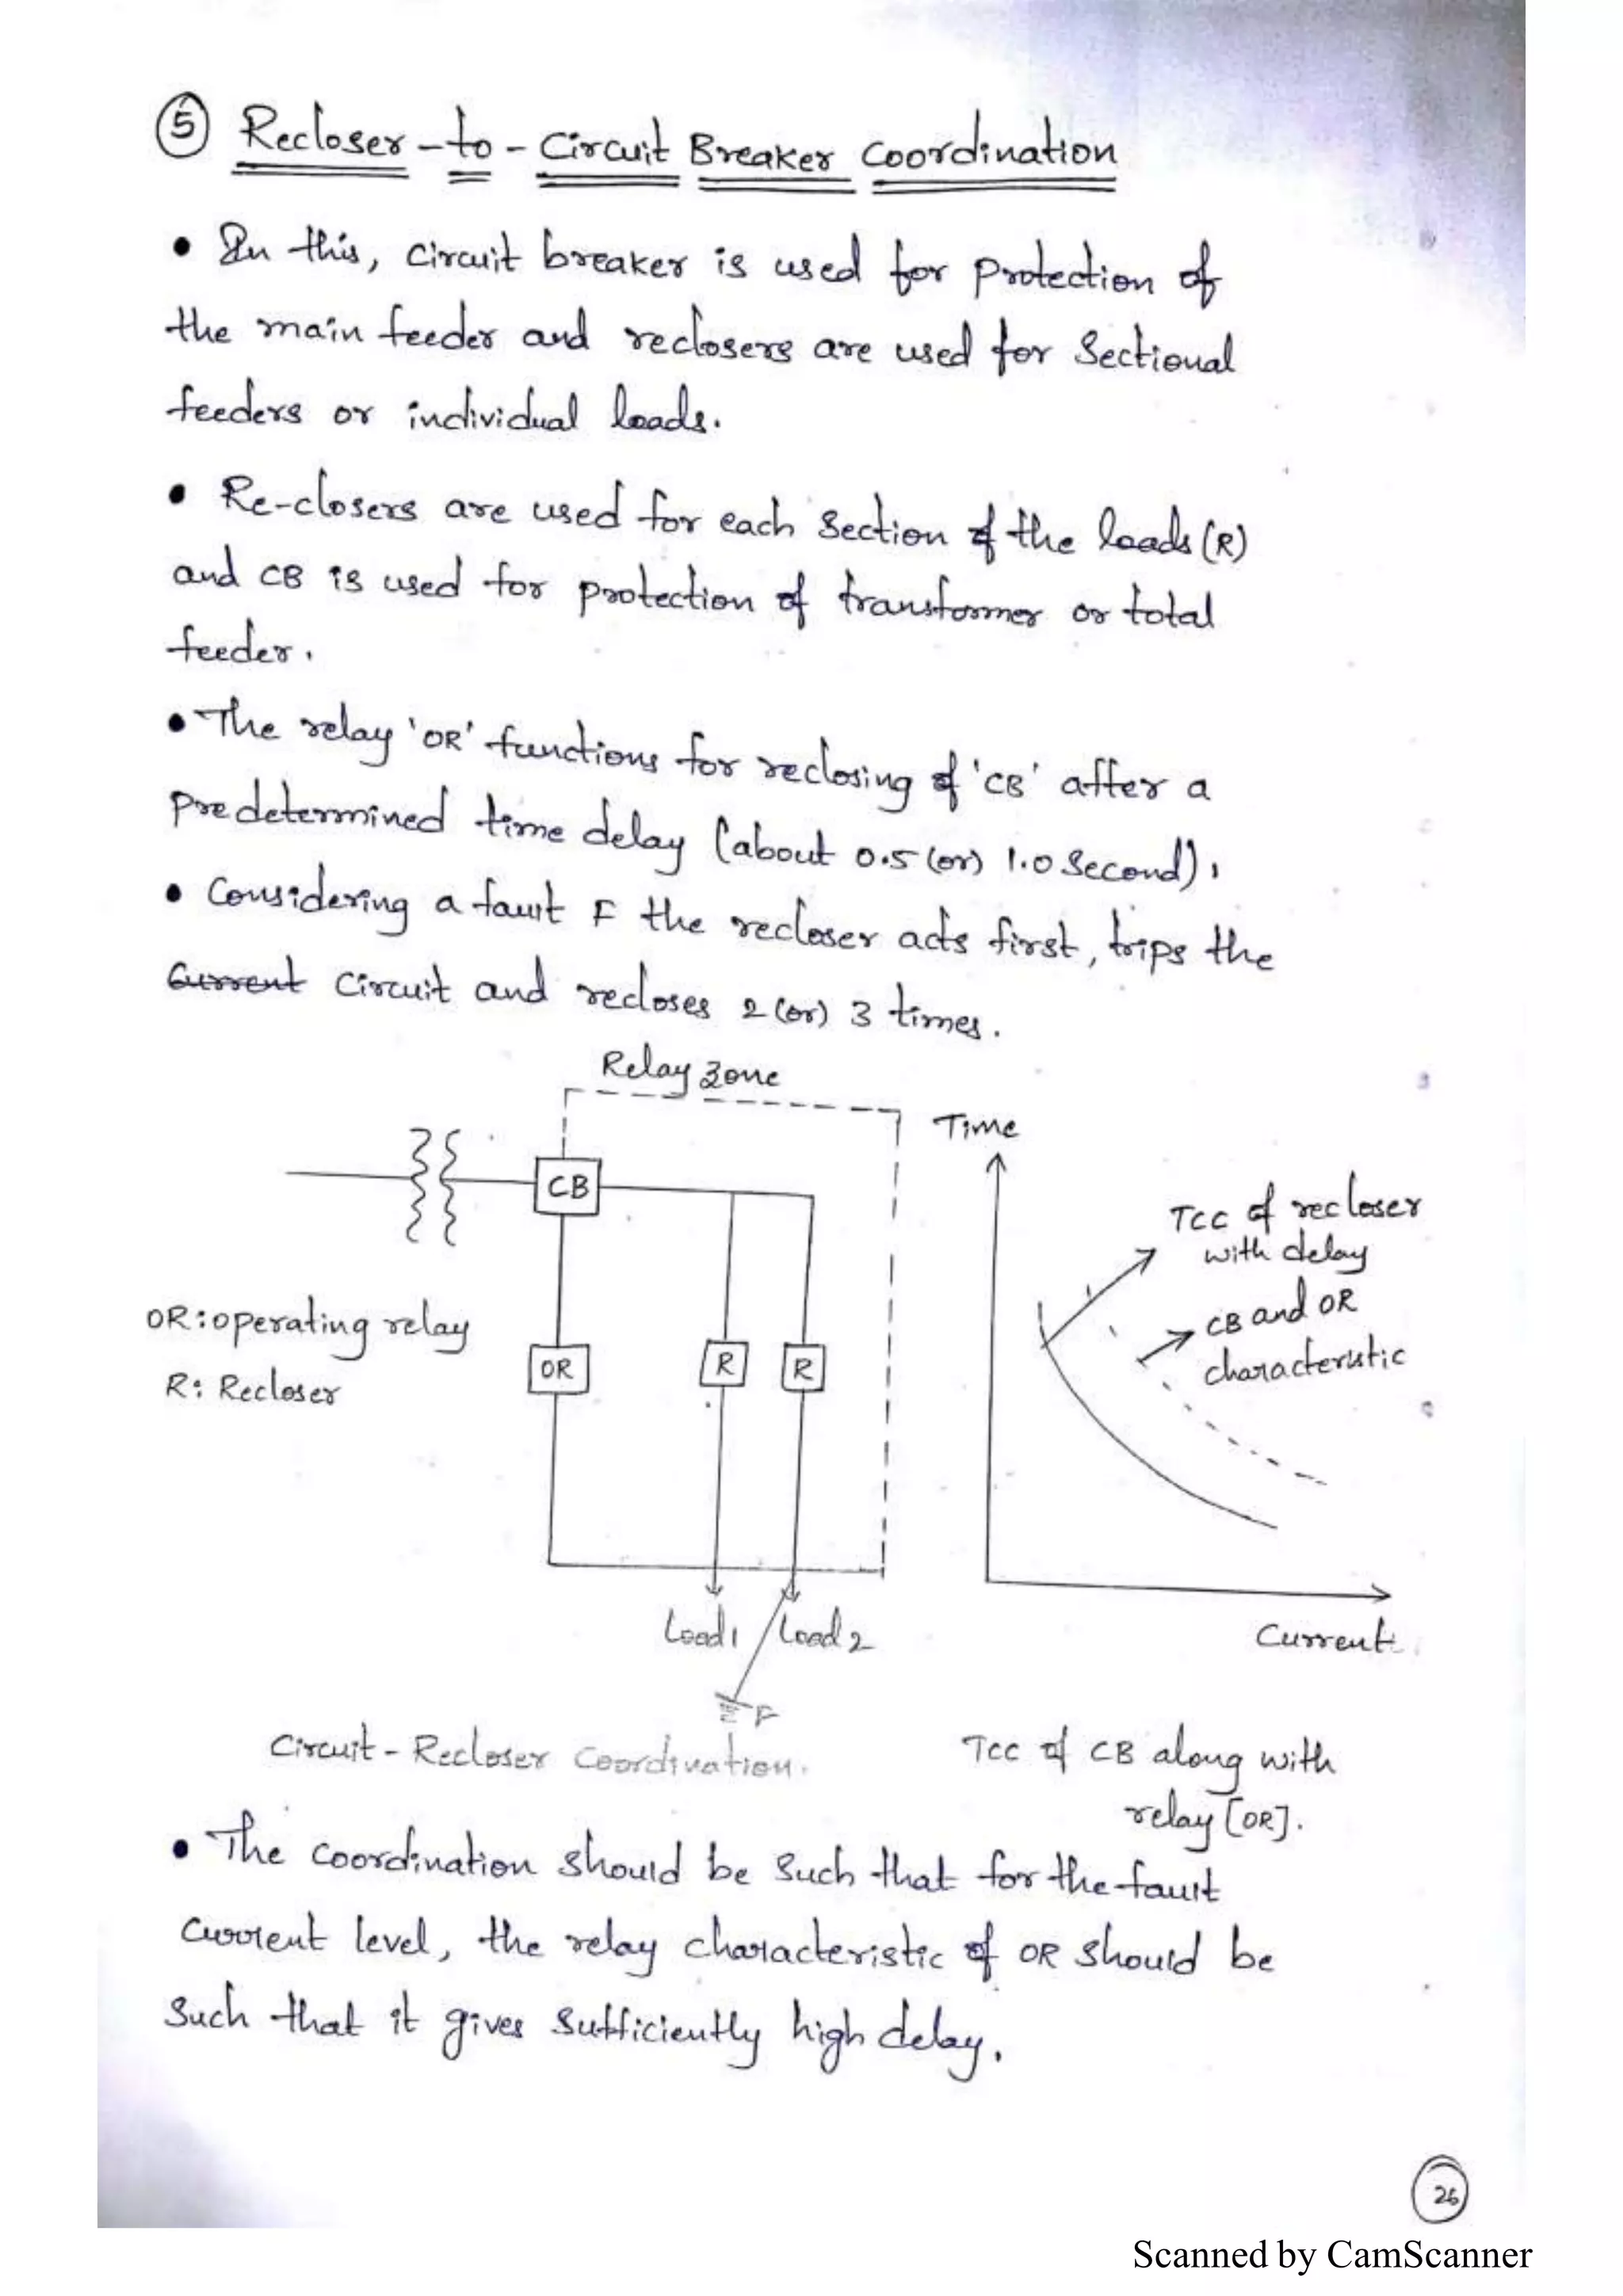 5 Recloser-to-Circuit Breaker Coordination
• In this, circuit breaker is used for protection of
the main feeder and reclosers are used for Sectional
feeders or individual loads.
• Re-closers are used for each section of the loads (R)
and CB is used for protection of transformer or total
feeder.
• The relay 'OR' functions for reclosing of 'CB' after a
predetermined time delay (about 0.5 (or) 1.0 Second).
• Considering a fault F the recloser acts first, trips the
Current circuit and recloses 2 (or) 3 times.
Relay zone
CB
OR: operating relay
R: Recloser
OR
R
R
Load1
Load2
F
Circuit-Recloser Coordination.
Time
TCC of recloser
with delay
CB and OR
characteristic
Current
TCC of CB along with
relay [OR].
• The coordination should be such that for the fault
current level, the relay characteristic of OR should be
such that it gives sufficiently high delay.
26
Scanned by CamScanner